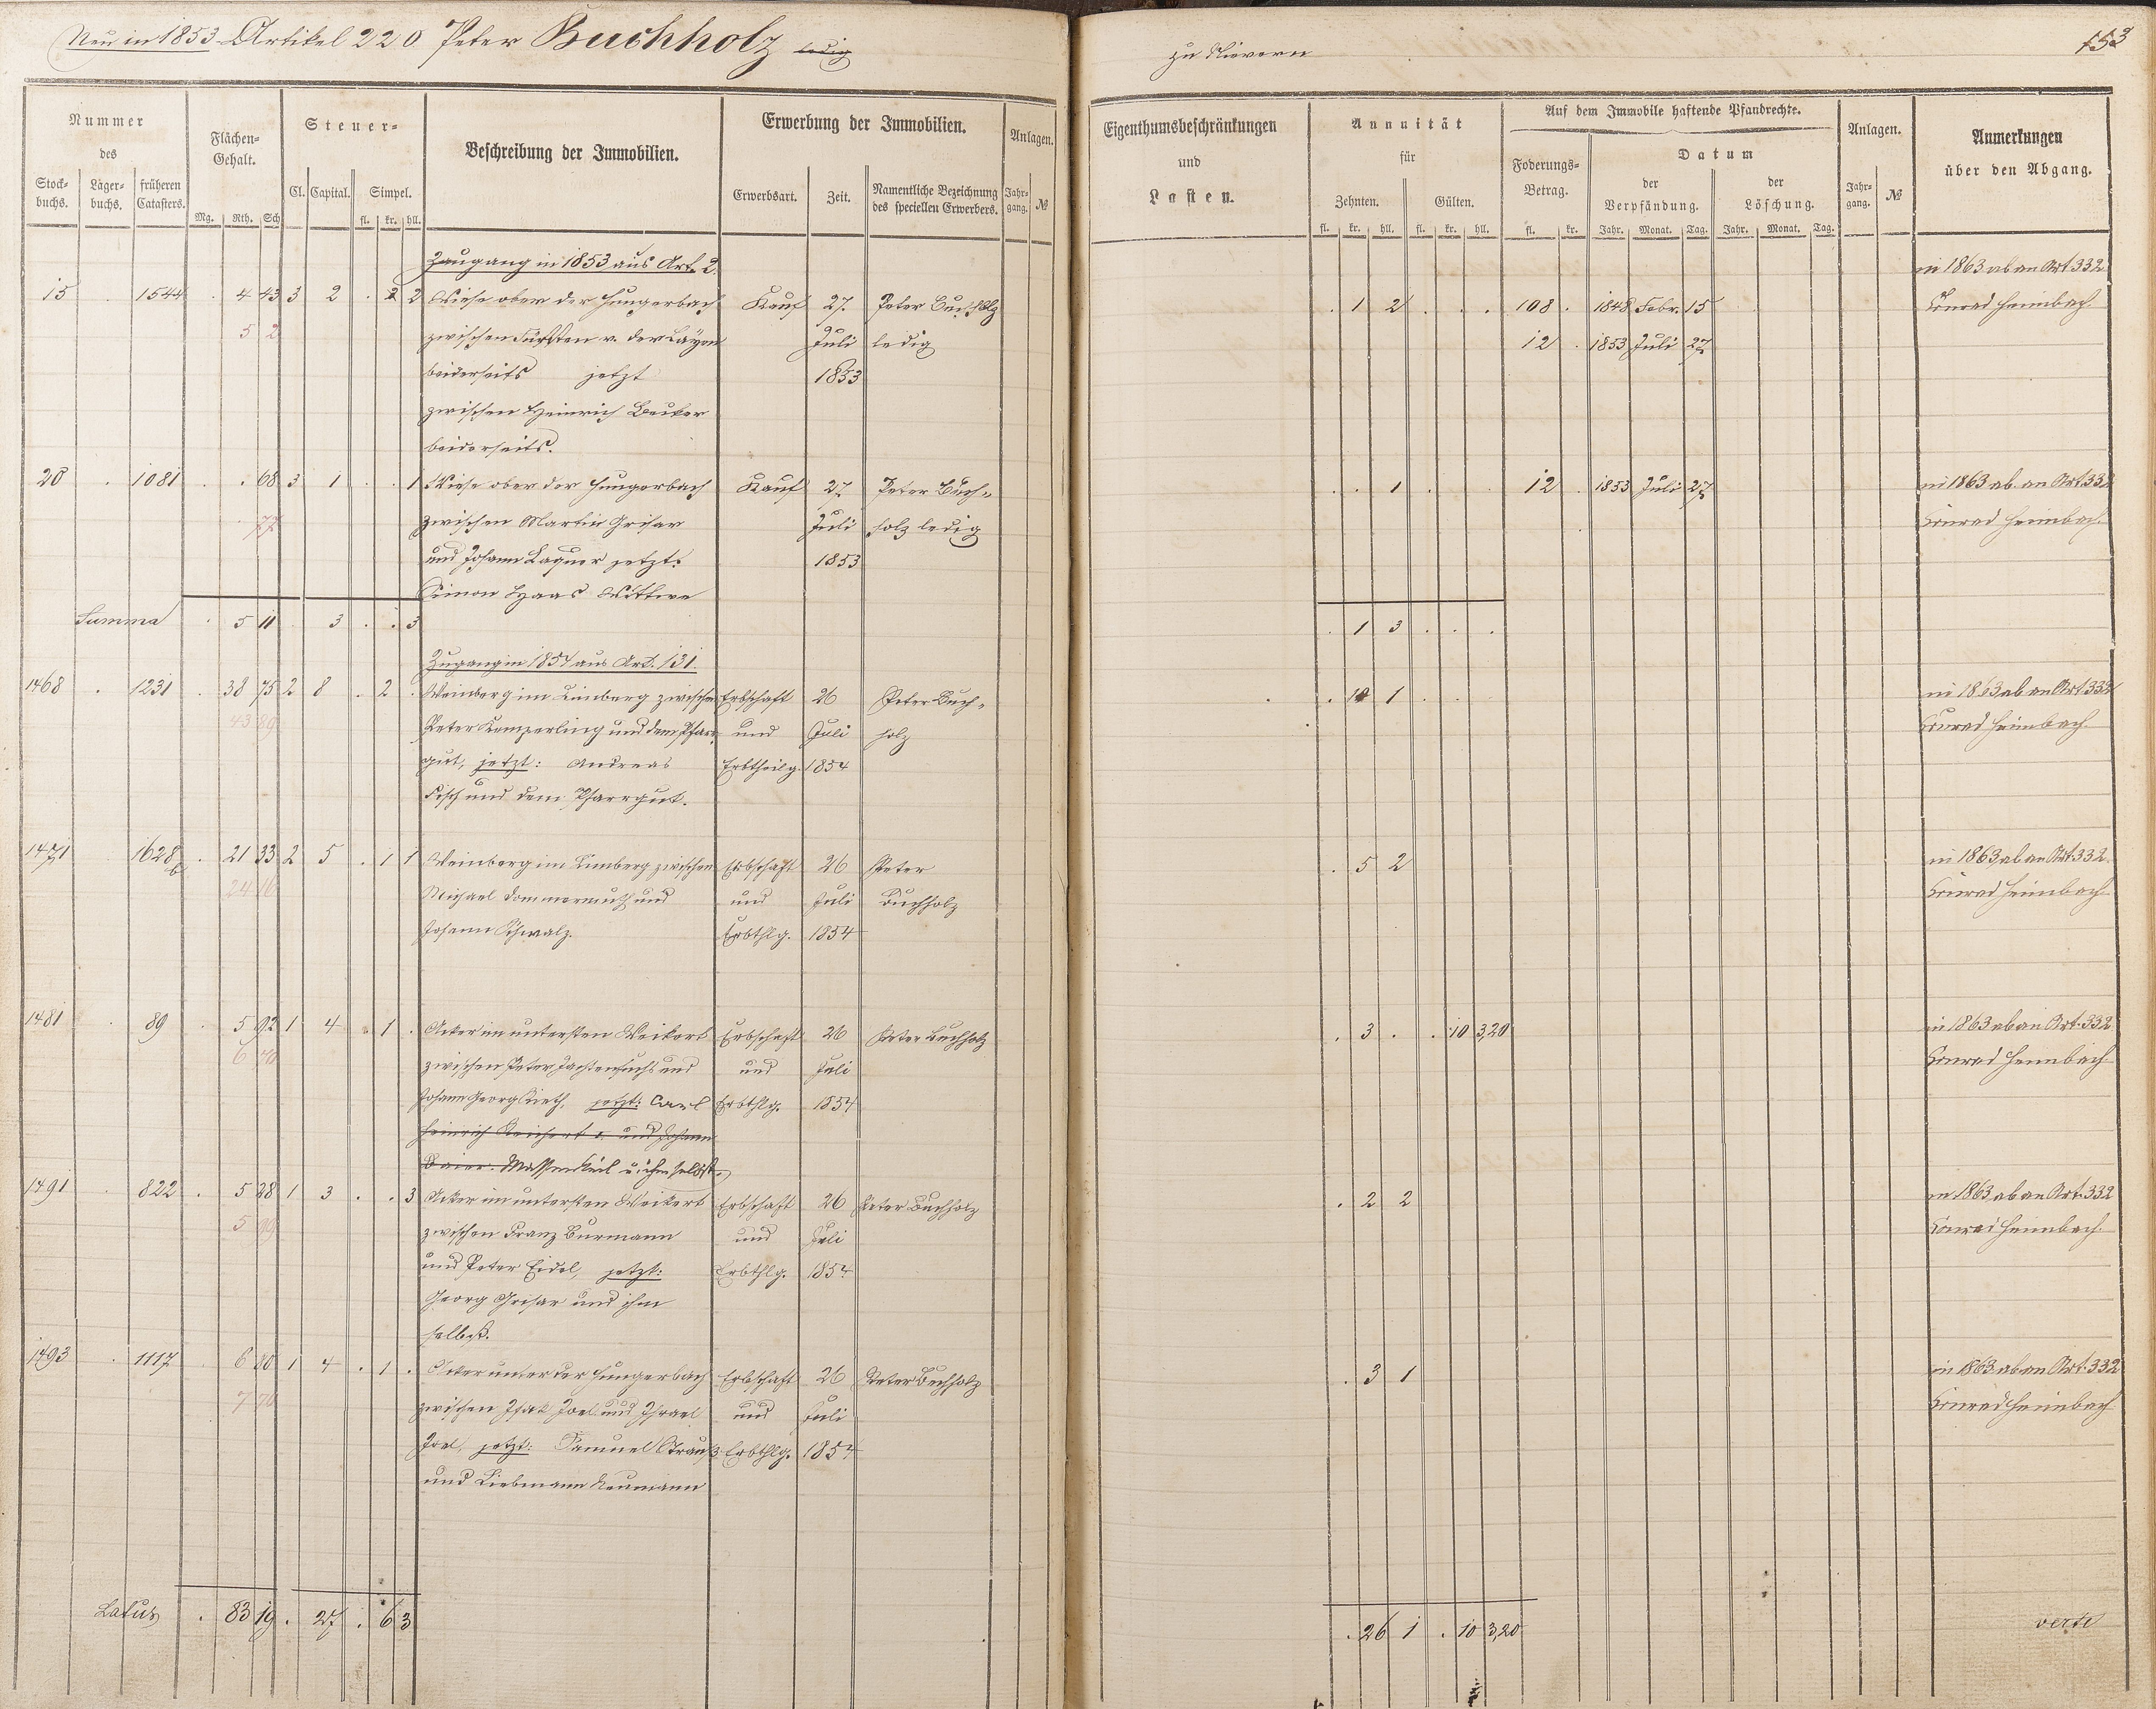 Neu in 1853 Artikel 220 Peter Buchholz ledig
zu Nievern
153
Nummer des
Stock-buchs. Läger-buchs. früheren Catasters.
Flächen-Gehalt.
Mg. Rth. Sch
Steuer-
Cl. Capital. Simpel.
fl. kr. hll.
Beschreibung der Immobilien.
Erwerbung der Immobilien.
Erwerbsart. Zeit. Namentliche Bezeichnung des speciellen Erwerbers.
Anlagen.
Jahr-gang. №
Eigenthumsbeschränkungen und Lasten.
Annuität für
Zehnten. Gülten.
fl. kr. hll. fl. kr. hll.
Auf dem Immobile haftende Pfandrechte.
Foderungs-Betrag.
fl. kr.
Datum
der Verpfändung. der Löschung.
Jahr. Monat. Tag. Jahr. Monat. Tag.
Anlagen.
Jahr-gang. №
Anmerkungen über den Abgang.
Zugang in 1853 aus Art. 2.
in 1863 ab an Art 332
15 . 1544 . 4 43 3 2 . 2 2 Wiese ober der Hungerbach Kauf 27. Peter Buchholz . 1 2 . . . 108 . 1848 Febr. 15 Conrad Heimbach
5 2 zwischen Fürsten v. der Layen Juli ledig 12 . 1853 Juli 27
beiderseits jetzt 1853
zwischen Heinrich Becker
beiderseits.
20 . 1081 . . 68 3 1 . . 1 Wiese ober der Hungerbach Kauf 27. Peter Buch- . . 1 . . 12 . 1853 Juli 27 in 1863 ab an Art 332
77 zwischen Martin Grisar Juli holz ledig Conrad Heimbach
und Johann Laquer jetzt: 1853
Simon Haas Wittwe
Summa . 5 11 3 . . 3 . 1 3 . . .
Zugang in 1854 aus Art. 131.
1468 . 1231 . 38 75 2 8 . 2 . Weinberg im Limberg zwischen Erbschaft 26 Peter Buch- . 10 1 . . in 1863 ab an Art 332
43 89 Peter Kemperling und dem Pfarr- und Juli holz Conrad Heimbach
gut, jetzt: Andreas Erbtheilg. 1854
Fisch und dem Pfarrgut.
1471 1628 b . 21 33 2 5 . 1 1 Weinberg im Limberg zwischen Erbschaft 26 Peter . 5 2 in 1863 ab an Art 332
24 16 Michael Dommermuth und und Juli Buchholz Conrad Heimbach
Johann Schwalz. Erbthlg. 1854
1481 . 89 . 5 92 1 4 . 1 . Acker im untersten Weikert Erbschaft 26 Peter Buchholz . 3 . . 10 3,20 in 1863 ab an Art. 332
6 70 zwischen Peter und und Juli Conrad Heimbach
Johann Georg Kieth, jetzt: Carl Erbthlg. 1854
Heinrich Reichert und Johann
Baier. Massenkeil u. ihm selbst.
1491 . 822 . 5 28 1 3 . . 3 Acker im untersten Weikert Erbschaft 26 Peter Buchholz . 2 2 in 1863 ab an Art. 332
5 99 zwischen Franz Burmann und Juli Conrad Heimbach
und Peter Eidel, jetzt: Erbthlg. 1854
Georg Grisar und ihm
selbst.
1493 . 1117 6 80 1 4 . 1 . Acker unter der Hungerbach Erbschaft 26 Peter Buchholz . 3 1 in 1863 ab an Art. 332
7 70 zwischen Isak Joel und Israel und Juli Conrad Heimbach
Joel, jetzt: Samuel Strauß Erbthlg. 1854
und Liebmann Neumann
Latus . 83 19 . 27 . 6 3 . 26 1 . 10 3,20 verte